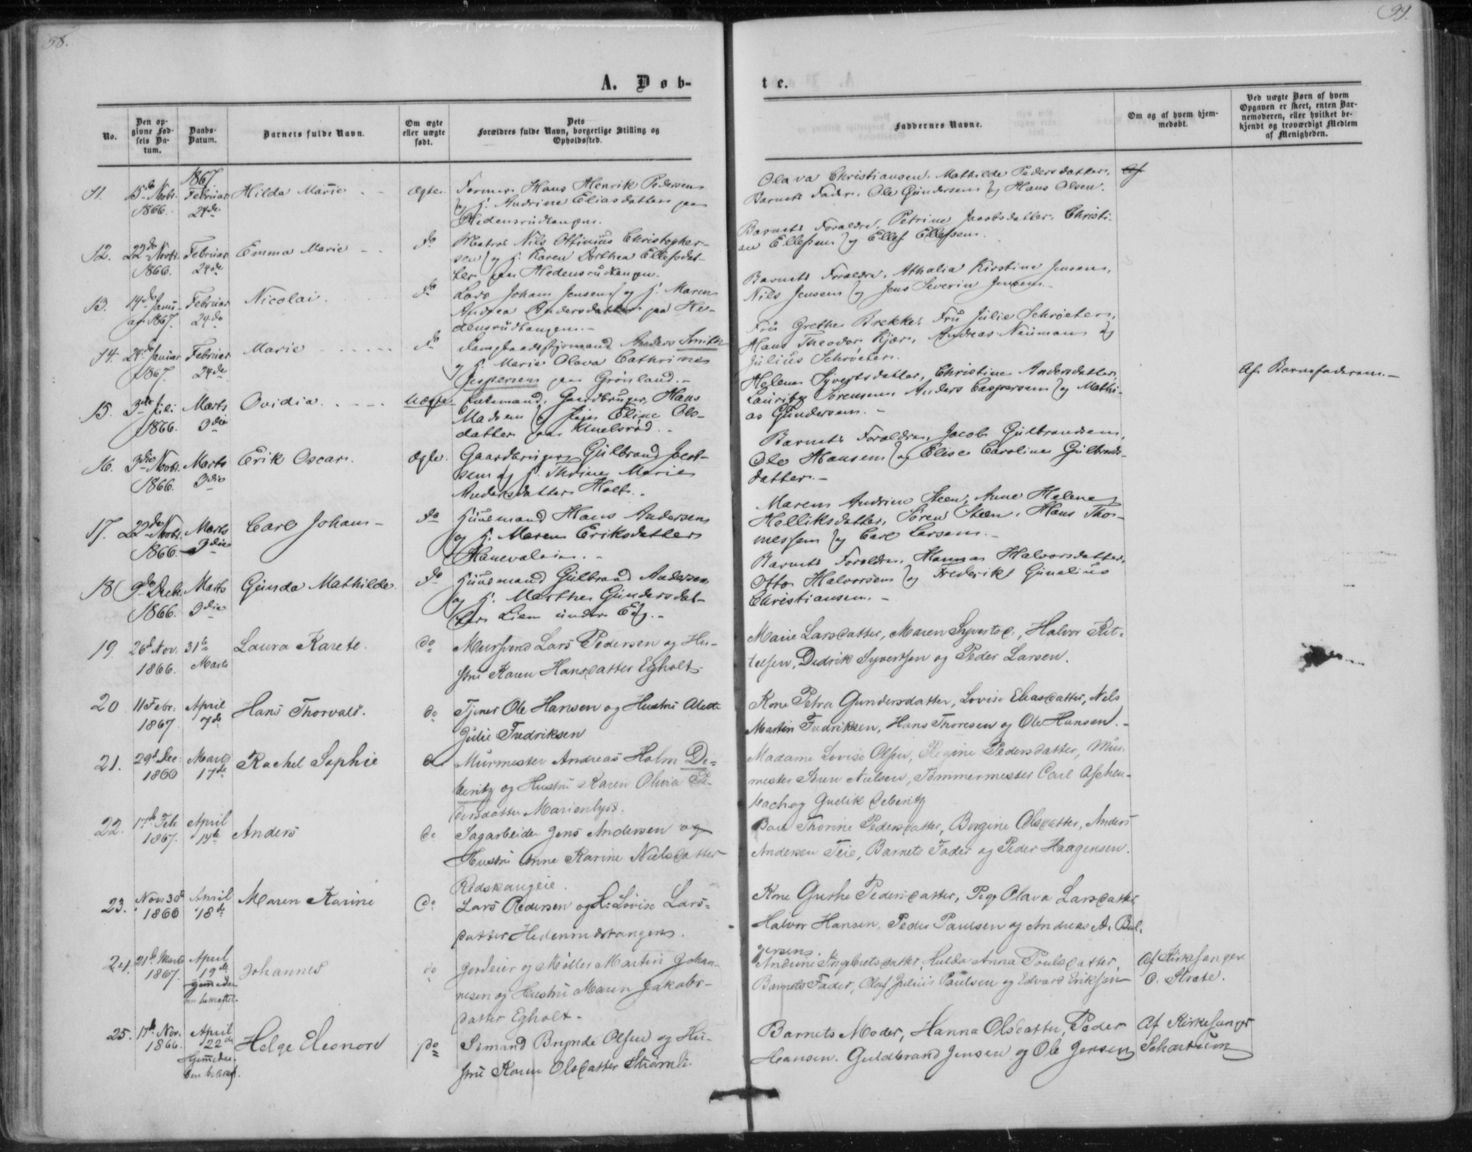 58.
59.
A. Døb-
te.
No.
Den op-
givne Fød-
sels Da-
tum.
Daabs-
Datum.
Barnets fulde Navn.
Om ægte
eller uægte
født.
Dets
Forældres fulde Navn, borgerlige Stilling og
Opholdssted.
Faddernes Navne.
Om og af hvem hjem-
medøbt.
Ved uægte Børn af hvem
Opgaven er skeet, enten Bar-
nemoderen, eller hvilket be-
kjendt og troværdigt Medlem
af Menigheden.
11.
Novbr.
1866.
1867
Februar
24de
Hilda Marie
ægte
Hans Henrik Pedersen
og H. Andrine Eliasdatter paa
Hedensrudtangen.
Olava Christiansen, Mathilde Pedersdatter,
Barnets Fader, Ole Gundersen og Hans Olsen.
12.
22de Novbr.
1866.
Februar
24de
Emma Marie
do
Matros Nils Ottinius Christopher-
sen og H. Karen Dorthea Ellefsdat-
ter paa Hedensrudtangen.
Barnets Forældre, Petrine Jacobsdatter, Christi-
an Ellefsen og Ellef Ellefsen.
13.
14de Janu-
ar 1867.
Februar
24de
Nicolai.
do
Lods Johan Jensen og H. Maren
Andrea Andersdatter paa He-
densrudtangen.
Barnets Forældre, Athalia Kirstine Jensen,
Nils Jensen og Jens Severin Jensen.
14
Januar
1867.
Februar
24de
Marie
do
Anders Smith
og H. Marie Olava Cathrine
Jespersen paa Grønland.
Fru Grethe Brekke, Fru Julie Schrøeter,
Hans Theodor Kjær, Andreas Neumann og
Julius Schrøeter.
15.
3die Juli
1866.
Marts
3die
Ovidia
uægte
Hans
Madsen og Pige Eline Ols-
datter paa
Helene Syvertsdatter, Christine Andersdatter,
Lauritz Sørensen, Anders Caspersen og Mathi-
as Gundersen.
Af Barnefaderen.
16.
3die Novbr.
1866.
Marts
3die
Erik Oscar.
ægte.
Gaardbruger Gulbrand Jacob-
sen og H. Thrine Marie
Andersdatter Holt.
Barnets Forældre, Jacob Gulbrandsen,
Ole Hansen og Elise Caroline Gulbrands-
datter.
17.
22de Novbr.
1866.
Marts
3die
Carl Johan
do
Huusmand Hans Andersen
og H. Maren Eriksdatter
Hanevolden.
Maren Andrine Steen, Anne Helene
Søren Steen, Hans Tho-
messen og Carl Larsen.
18
9de Decbr
1866.
Marts
3die
Gunda Mathilde.
do
Huusmand Gulbrand Andersen
og H. Marthe Gundersdat-
ter Lien under
Barnets Forældre, Hanna Halvorsdatter,
Otto Halvorsen og Frederik Gunelius
Christiansen.
19
26de Nov.
1866.
31te
Marts
Laura Karete.
do
Lars Pedersen og Hu-
stru Karen Hansdatter Egholt
Marie Larsdatter, Maren Syvertsd., Halvor
Didrik Syvertsen og Peder Larsen.
20
11 Febr.
1867.
April
7de
Hans Thorvald.
do
Tjener Ole Hansen og Hustru
Julie Fredriksen
Kone Petra Gundersdatter, Lovise Eliasdatter, Nils
Martin Fredriksen, Hans Thoresen og Ole Hansen.
21.
29de Dec.
1866
Marts
17de
Rachel Sophie
do
Murmester Andreas Holm De-
beritz og Hustru Karen Olivia Pe-
dersdatter Marienlyst.
Madame Lovise Olsen, Regine Pedersdatter, Mur-
mester Søren Nielsen, Tømmermester Carl Aschen-
bach og Gudik Deberitz
22.
17de Feb
1867.
April
Anders
do
Sagarbeider Jens Andersen og
Hustru Anne Karine Nielsdatter
Thorine Pedersdatter, Bergine Olsdatter, Anders
Andersen Teie, Barnets Fader og Peder Haagensen.
23.
Novr 30te
1866
April
18de
Maren Karine
do
Lars Pedersen og H. Lovise Lars-
datter Hedenrudstangen.
Kone Grethe Pedersdatter, Pige Olava Larsdatter
Halvor Hansen, Peder Paulsen og Andreas A. Bul-
gersen.
24.
21de Marts
1867.
April
19de
Johannes
do
Gardeier og Møller Martin Johan-
nesen og Hustru Maren Jakobs-
datter Egholt.
Andrine Ingebretsdatter, Hulda Anna Poulsdatter,
Barnets Fader, Olaf Julius Paulsen og Edvard Eriksen
Af Kirkesanger
O. Strate.
25.
17de Nov.
1866.
April
22de
Helge Eleonore
do
Sømand Brynde Olsen og Hu-
stru Karen Olsdatter
Barnets Moder, Hanna Olsdatter, Peder
Hansen, Guldbrand Jensen og Ole Jensen
Af Kirkesanger
Schartum